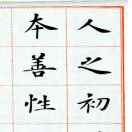 人之初
本善性